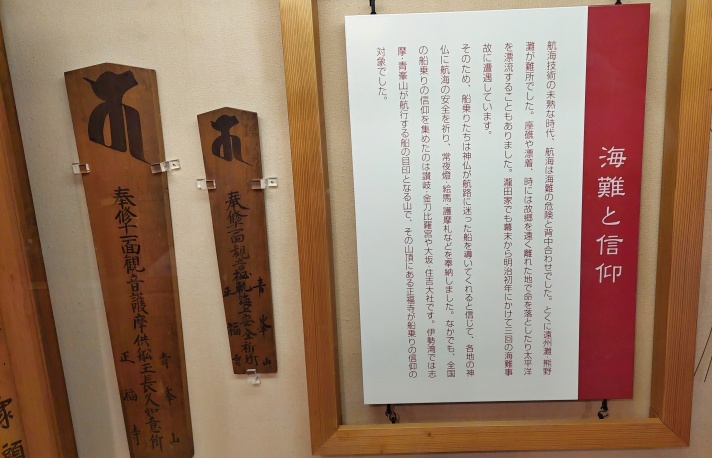 海難と信仰
航海技術の未熟な時代、航海は海難の危険と背中合わせでした。とくに遠州灘・熊野
灘が難所でした。座礁や漂着、時には故郷を遠く離れた地で命を落としたり太平洋
を漂流することもありました。瀧田家でも幕末から明治初年にかけて三回の海難事
故に遭遇しています。
そのため、船乗りたちは神仏が航路に迷った船を導いてくれると信じて、各地の神
仏に航海の安全を祈り、常夜燈・絵馬・護摩札などを奉納しました。なかでも、全国
の船乗りの信仰を集めたのは讃岐・金刀比羅宮や大坂・住吉大社です。伊勢湾では志
摩・青峯山が航行する船の目印となる山で、その山頂にある正福寺が船乗りの信仰の
対象でした。
青峯山
奉修十一面観音護摩供船主長久如意
正福寺
青峯山
奉修十一面観音
海上安全祈
正福寺